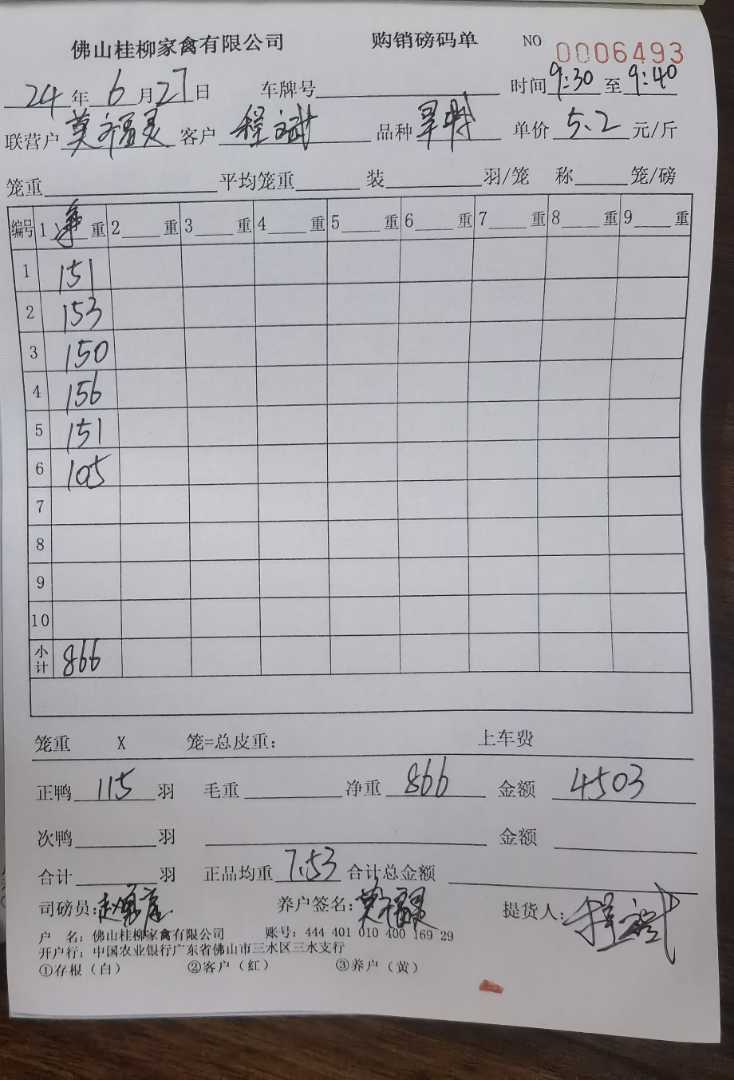 佛山桂柳家禽有限公司 购销磅码单 NO 0006493
24年6月27日 车牌号 时间9:30至9:40
联营户莫福灵 客户程斌 品种 单价5.2元/斤
笼重 平均笼重 装 羽/笼 称 笼/磅
编号 1净重 2重 3重 4重 5重 6重 7重 8重 9重
1 151
2 153
3 150
4 156
5 151
6 105
7
8
9
10
小计 866
笼重 X 笼=总皮重: 上车费
正鸭115羽 毛重 净重866 金额4503
次鸭 羽 金额
合计 羽 正品均重7.53合计总金额
司磅员: 养户签名:莫福灵 提货人:程斌
户 名:佛山桂柳家禽有限公司 账号:444 401 010 400 169 29
开户行:中国农业银行广东省佛山市三水区三水支行
①存根(白) ②客户(红) ③养户(黄)